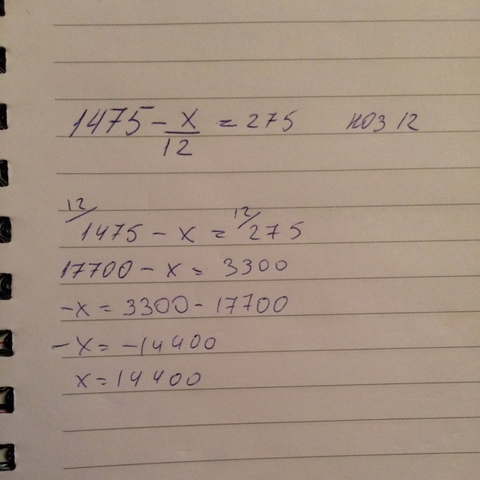 1475 - x/12 = 275 НОЗ 12
12/ 1475 - x = 12/ 275
17700 - x = 3300
-x = 3300 - 17700
-x = -14400
x = 14400